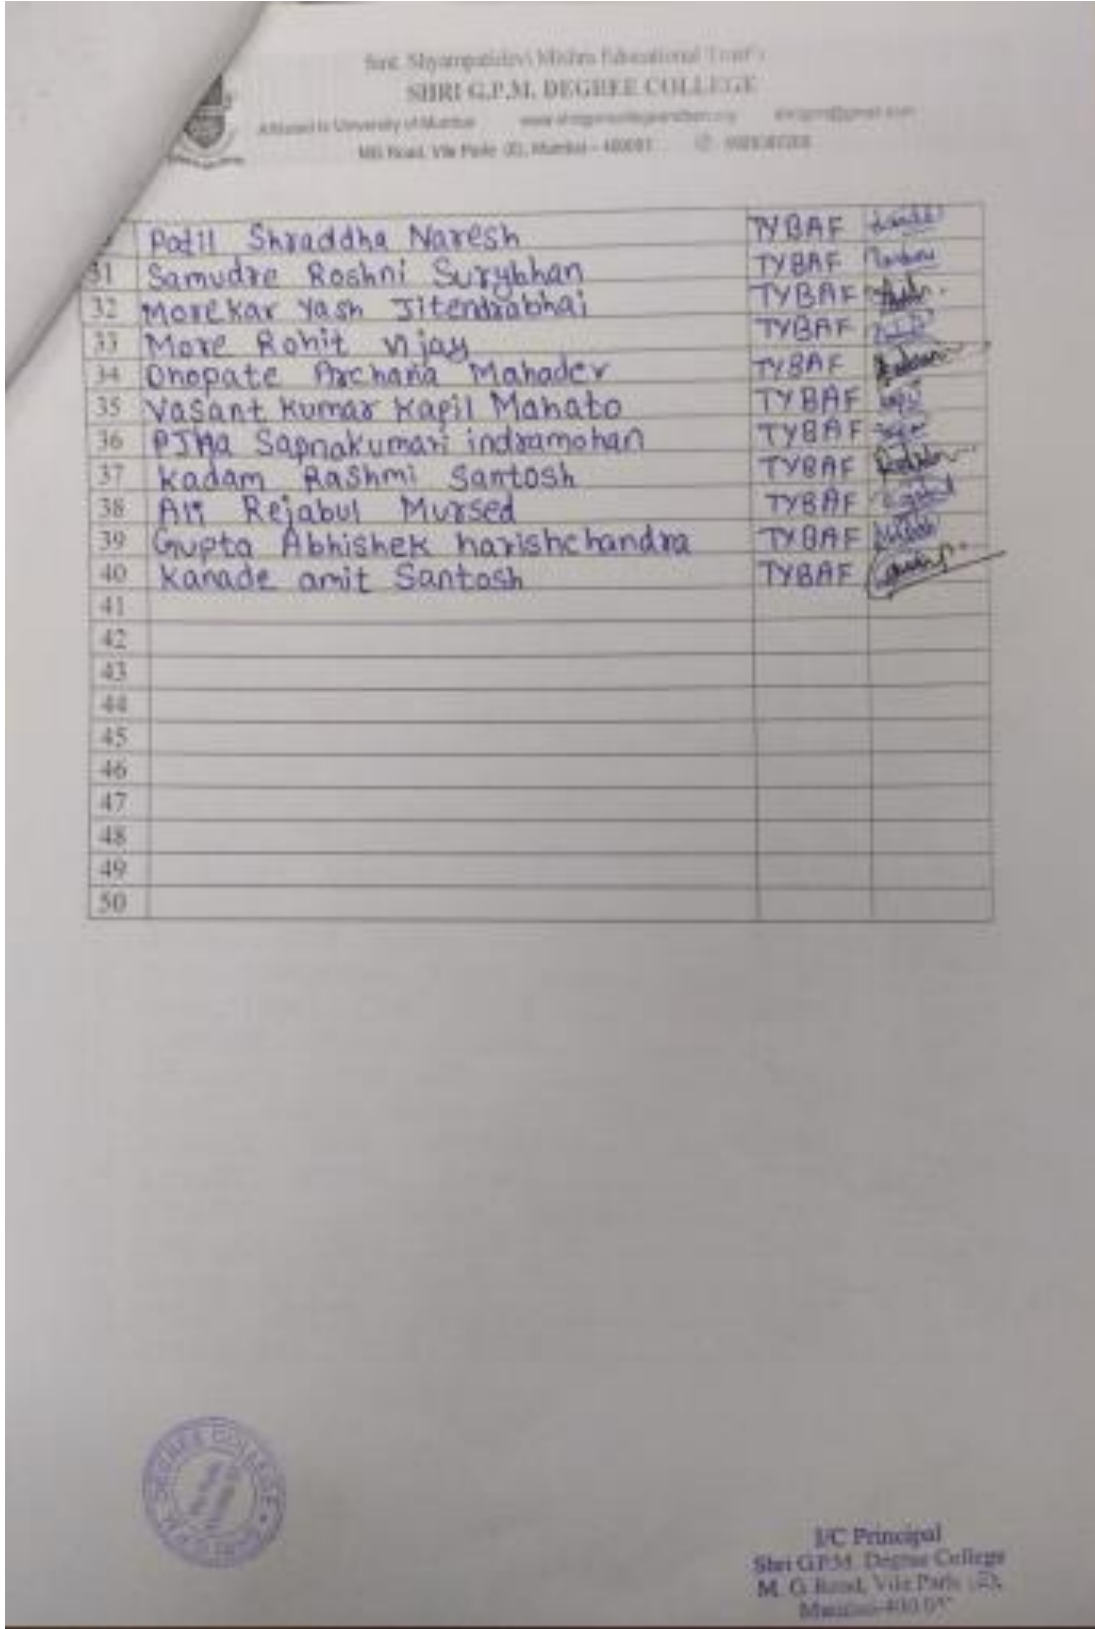 Smt. Shyampatidevi Mishra Educational Trust's
SHRI G.P.M. DEGREE COLLEGE
Affiliated to University of Mumbai
MG Road, Vile Parle (E), Mumbai - 400057
Patil Shraddha Naresh TYBAF
31 Samudre Roshni Surybhan TYBAF
32 Morekar Yash Jitendrabhai TYBAF
33 More Rohit Vijay TYBAF
34 Dhopate Archana Mahadev TYBAF
35 Vasant Kumar Kapil Mahato TYBAF
36 Sapnakumari indramohan TYBAF
37 Kadam Rashmi Santosh TYBAF
38 Ali Rejabul Mursed TYBAF
39 Gupta Abhishek harishchandra TYBAF
40 Kanade amit Santosh TYBAF
41
42
43
44
45
46
47
48
49
50
DEGREE COLLEGE
I/C Principal
Shri G.P.M. Degree College
M. G. Road, Vile Parle (E),
Mumbai-400 05